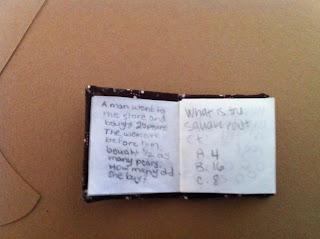 A man went to
the store and
bought 20 pears
The woman
before him
bought 1/2 as
many pears.
How many did
she buy?
What is the
square root
of
A. 4
B. 16
C. 8